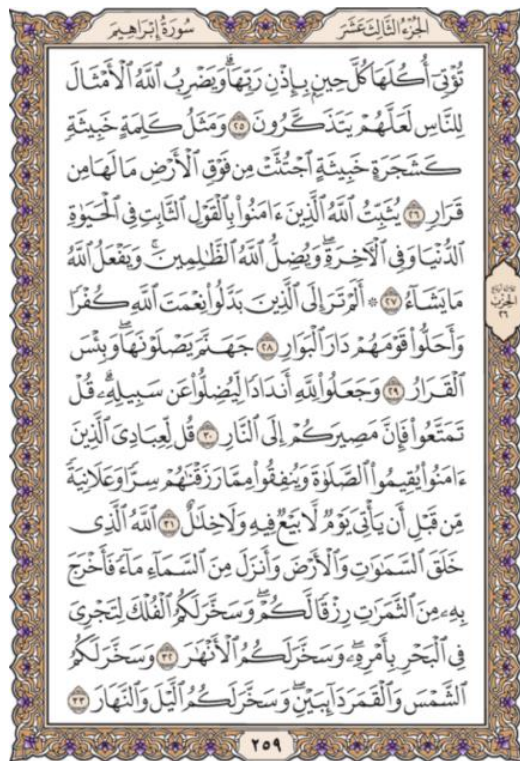 الجُزْءُ الثَّالِثَ عَشَرَ
سُورَةُ إِبْرَاهِيمَ
تُؤْتِيٓ أُكُلَهَا كُلَّ حِينِۭ بِإِذْنِ رَبِّهَاۗ وَيَضْرِبُ ٱللَّهُ ٱلْأَمْثَالَ
لِلنَّاسِ لَعَلَّهُمْ يَتَذَكَّرُونَ ٢٥ وَمَثَلُ كَلِمَةٍ خَبِيثَةٍ
كَشَجَرَةٍ خَبِيثَةٍ ٱجْتُثَّتْ مِن فَوْقِ ٱلْأَرْضِ مَا لَهَا مِن
قَرَارٍ ٢٦ يُثَبِّتُ ٱللَّهُ ٱلَّذِينَ ءَامَنُوا۟ بِٱلْقَوْلِ ٱلثَّابِتِ فِي ٱلْحَيَوٰةِ
ٱلدُّنْيَا وَفِي ٱلْـَٔاخِرَةِۖ وَيُضِلُّ ٱللَّهُ ٱلظَّـٰلِمِينَۚ وَيَفْعَلُ ٱللَّهُ
مَا يَشَآءُ ٢٧ ۞ أَلَمْ تَرَ إِلَى ٱلَّذِينَ بَدَّلُوا۟ نِعْمَتَ ٱللَّهِ كُفْرًا
وَأَحَلُّوا۟ قَوْمَهُمْ دَارَ ٱلْبَوَارِ ٢٨ جَهَنَّمَ يَصْلَوْنَهَاۖ وَبِئْسَ
ٱلْقَرَارُ ٢٩ وَجَعَلُوا۟ لِلَّهِ أَندَادًا لِّيُضِلُّوا۟ عَن سَبِيلِهِۦۗ قُلْ
تَمَتَّعُوا۟ فَإِنَّ مَصِيرَكُمْ إِلَى ٱلنَّارِ ٣٠ قُل لِّعِبَادِيَ ٱلَّذِينَ
ءَامَنُوا۟ يُقِيمُوا۟ ٱلصَّلَوٰةَ وَيُنفِقُوا۟ مِمَّا رَزَقْنَـٰهُمْ سِرًّا وَعَلَانِيَةً
مِّن قَبْلِ أَن يَأْتِيَ يَوْمٌ لَّا بَيْعٌ فِيهِ وَلَا خِلَـٰلٌ ٣١ ٱللَّهُ ٱلَّذِي
خَلَقَ ٱلسَّمَـٰوَٰتِ وَٱلْأَرْضَ وَأَنزَلَ مِنَ ٱلسَّمَآءِ مَآءً فَأَخْرَجَ
بِهِۦ مِنَ ٱلثَّمَرَٰتِ رِزْقًا لَّكُمْۖ وَسَخَّرَ لَكُمُ ٱلْفُلْكَ لِتَجْرِيَ
فِي ٱلْبَحْرِ بِأَمْرِهِۦۖ وَسَخَّرَ لَكُمُ ٱلْأَنْهَـٰرَ ٣٢ وَسَخَّرَ لَكُمُ
ٱلشَّمْسَ وَٱلْقَمَرَ دَآئِبَيْنِۖ وَسَخَّرَ لَكُمُ ٱلَّيْلَ وَٱلنَّهَارَ ٣٣
الحِزْب
٢٦
٢٥٩